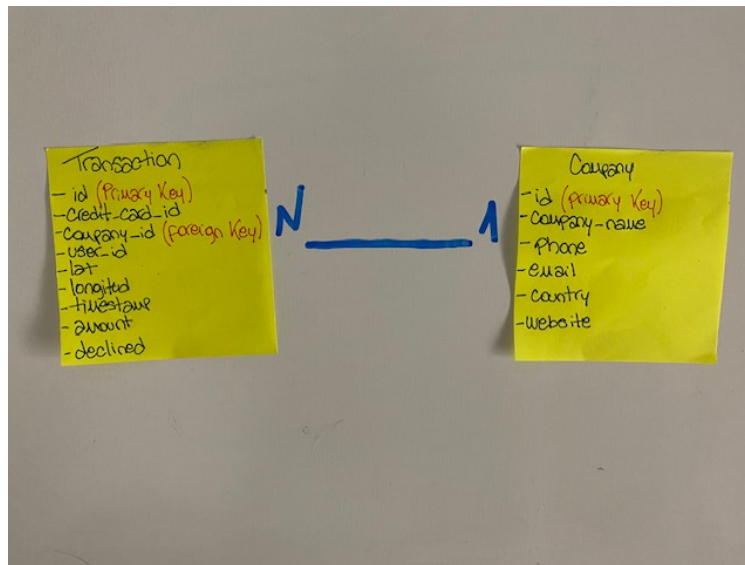 Transaction
- id (Primary Key)
- credit_card_id
- company_id (foreign Key)
- user_id
- lat
- longitud
- timestamp
- amount
- declined
N
1
Company
- id (primary Key)
- company_name
- phone
- email
- country
- website